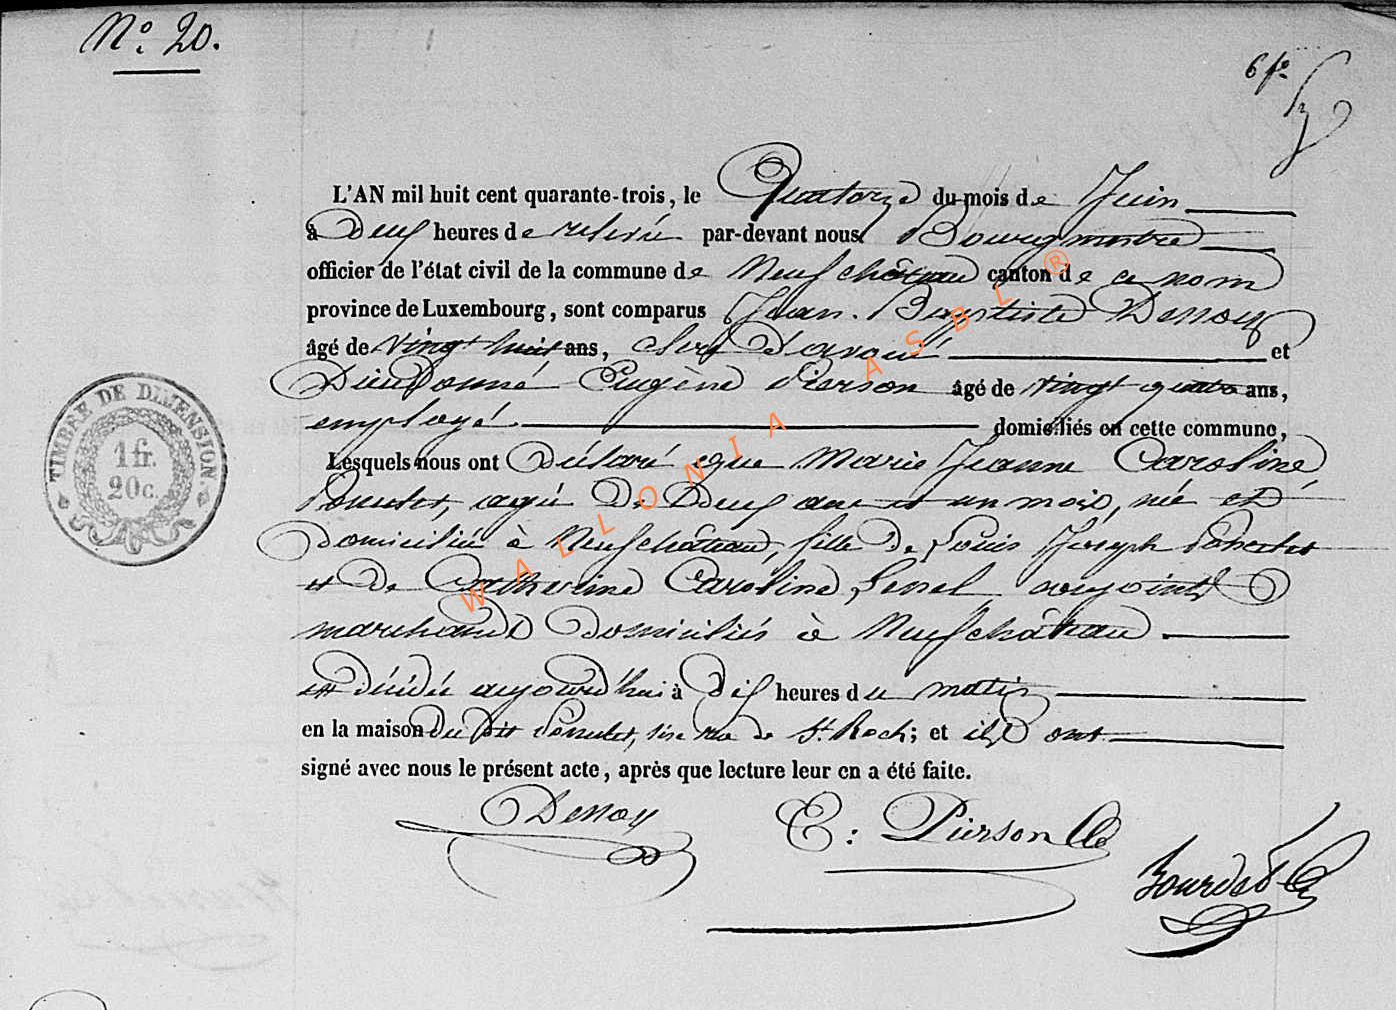 N° 20.
6 f°
L'AN mil huit cent quarante-trois, le Quatorze du mois de Juin
à Deux heures de relevée par-devant nous Bourgmestre
officier de l'état civil de la commune de Neufchâteau canton de ce nom
province de Luxembourg, sont comparus Jean Baptiste Dessoy
âgé de vingt huit ans, clerc d'avoué et
Dieudonné Eugène Pierson âgé de vingt quatre ans,
employé domiciliés en cette commune,
Lesquels nous ont Déclaré que Marie Jeanne Caroline
agée De Deux ans et un mois, née et
domiciliée à Neufchâteau, fille de Louis Joseph
et de Catherine Caroline conjoints
marchands domiciliés à Neufchâteau
est décédée aujourd'hui à Dix heures du matin
en la maison du dit sise rue de St. Roch; et ils ont
signé avec nous le présent acte, après que lecture leur en a été faite.
Dessoy
E: Pierson
Bourdet
TIMBRE DE DIMENSION.
1 fr.
20 c.
WALLONIA ASBL ®